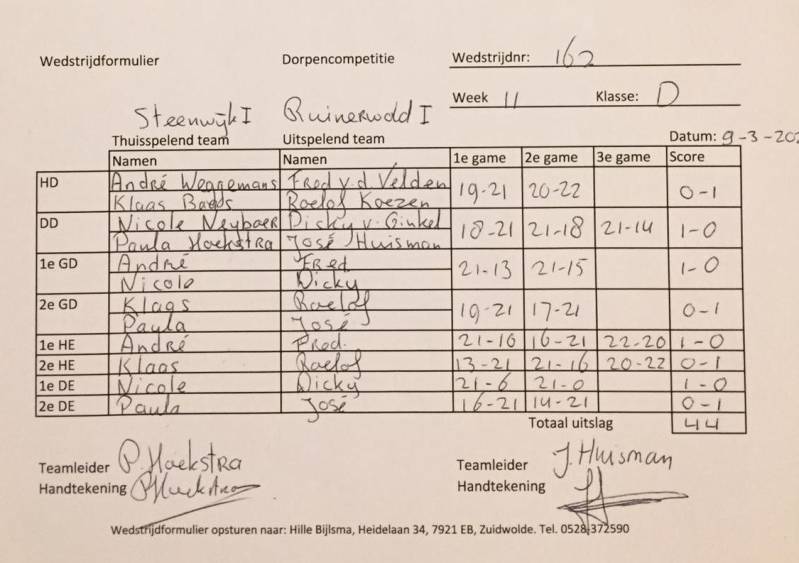 Wedstrijdformulier Dorpencompetitie Wedstrijdnr: 162
Week 11 Klasse: D
Steenwijk I Ruinerwold I
Thuisspelend team Uitspelend team Datum: 9-3-202
Namen Namen 1e game 2e game 3e game Score
HD André Weggemans Fred v.d Velden 19-21 20-22 0-1
Klaas Roelof Koezen
DD Nicole Dicky v. Ginkel 18-21 21-18 21-14 1-0
Paula Hoekstra José Huisman
1e GD André Fred 21-13 21-15 1-0
Nicole Dicky
2e GD Klaas Roelof 19-21 17-21 0-1
Paula José
1e HE André Fred. 21-10 16-21 22-20 1-0
2e HE Klaas Roelof 13-21 21-16 20-22 0-1
1e DE Nicole Dicky 21-6 21-0 1-0
2e DE Paula José 16-21 14-21 0-1
Totaal uitslag 44
Teamleider P. Hoekstra Teamleider J. Huisman
Handtekening PHoekstra Handtekening
Wedstrijdformulier opsturen naar: Hille Bijlsma, Heidelaan 34, 7921 EB, Zuidwolde. Tel. 0528-372590